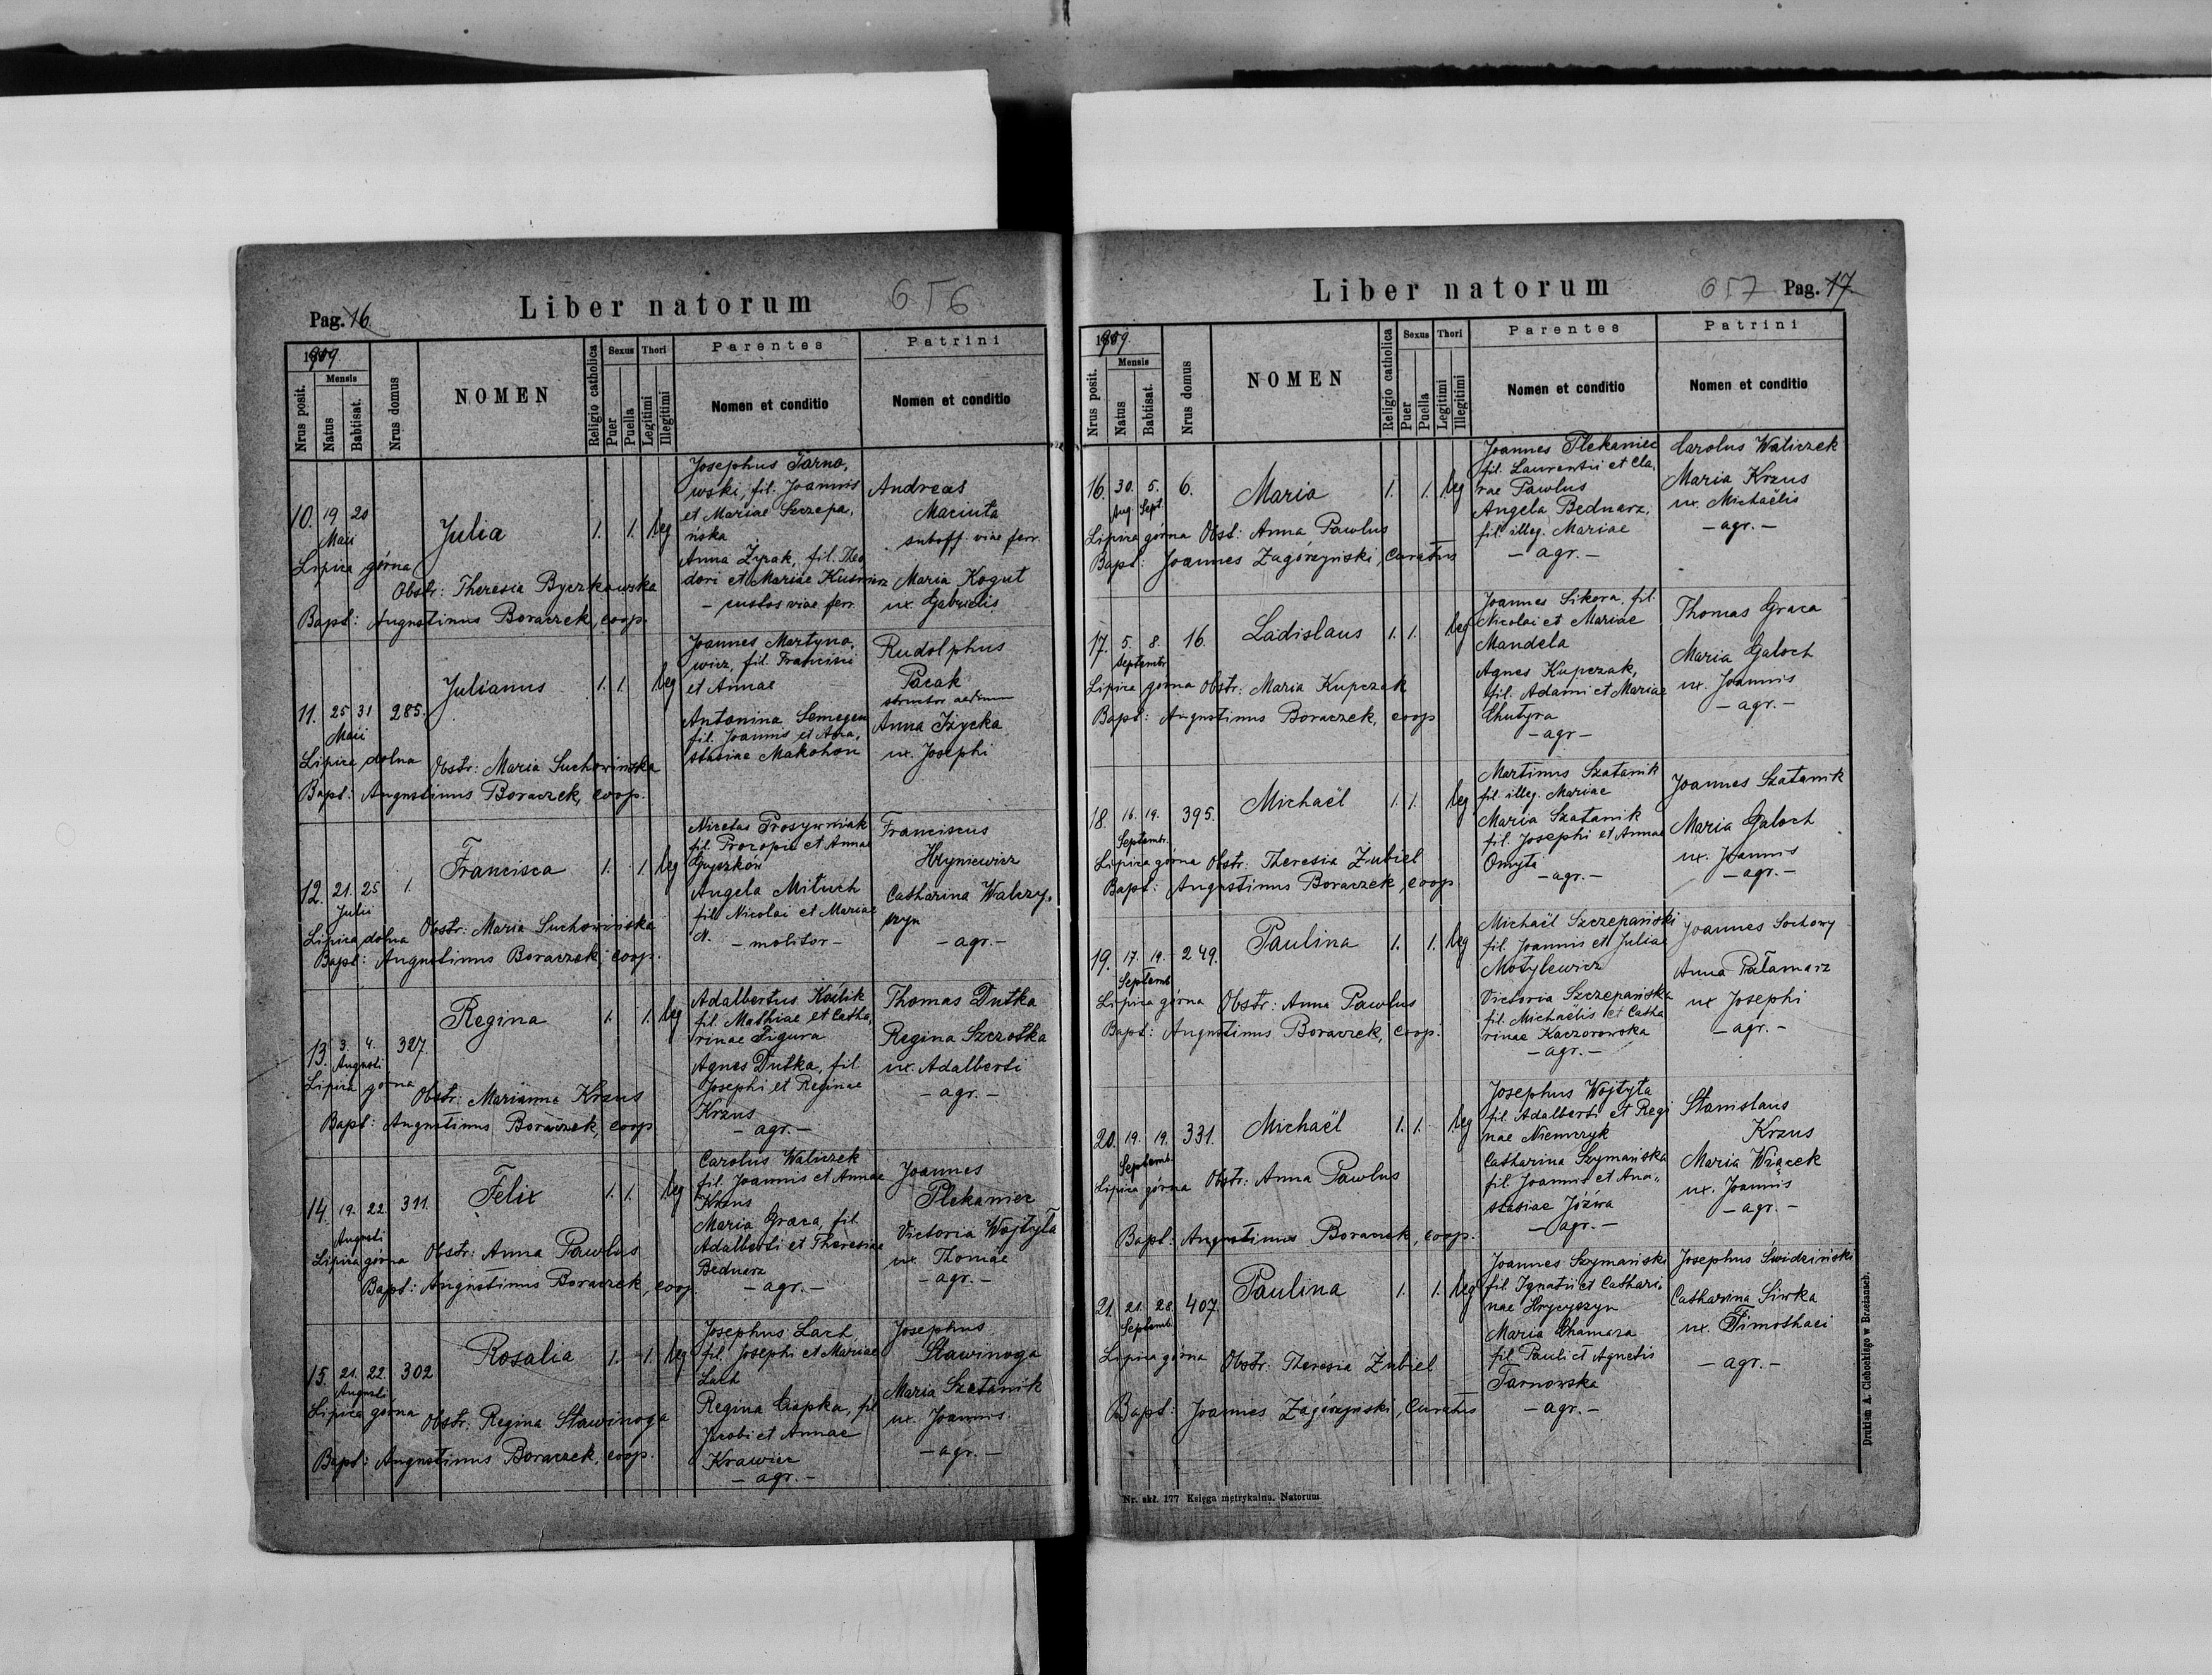 Pag. 16.
Liber natorum
656
1909.
Nrus posit.
Mensis
Natus
Babtisat.
Nrus domus
NOMEN
Religio catholica
Sexus
Puer
Puella
Thori
Legitimi
Illegitimi
Parentes
Nomen et conditio
Patrini
Nomen et conditio
10. 19 20
Maii
Julia
1. 1. leg
Lipica górna
Obstr: Theresia Byczkowska
Bapt: Augustinus Boraczek, coop.
Josephus Tarno,
wski, fil. Joannis
et Mariae Szczepa,
ńska
Anna Żyrak, fil. Theo
dori et Mariae Kusnierz
- custos viae ferr.
Andreas
Maciuta
suboff. viae ferr.
Maria Kogut
ux. Gabrielis
11. 25 31 285.
Maii
Julianus
1. 1. leg
Lipica dolna
Obstr: Maria Suchowińska
Bapt: Augustinus Boraczek, coop.
Joannes Martyno,
wicz, fil. Francisci
et Annae
Antonina Semegen
fil. Joannis et Ana,
stasiae Makohon
Rudolphus
Pacak
structor aedium
Anna Iżycka
ux. Josephi
12. 21. 25 1.
Julii
Francisca
1. 1. leg
Lipica dolna
Obstr: Maria Suchowińska
Bapt: Augustinus Boraczek, coop.
Nicetas Prosywniak
fil. Procopii et Annae
Gryszków
Angela Mituch
fil. Nicolai et Mariae
N. - molitor -
Franciscus
Hryniewicz
Catharina Walczy,
szyn
- agr. -
13. 3. 4. 327.
Augusti
Regina
1. 1. leg
Lipica górna
Obstr: Marianna Krzus
Bapt: Augustinus Boraczek, coop
Adalbertus Koślik
fil. Mathiae et Catha,
rinae Figura
Agnes Dutka, fil.
Josephi et Reginae
Krzus
- agr. -
Thomas Dutka
Regina Szczotka
ux. Adalberti
- agr. -
14. 19. 22. 311.
Augusti
Felix
1. 1. leg
Lipica górna
Obstr: Anna Pawlus
Bapt: Augustinus Boraczek, coop.
Carolus Waliczek
fil. Joannis et Annae
Krzus
Maria Graca, fil.
Adalberti et Theresiae
Bednarz
- agr. -
Joannes
Plekaniec
Victoria Wojtyła
ux. Thomae
- agr. -
15. 21. 22. 302
Augusti
Rosalia
1. 1. leg
Lipica górna
Obstr. Regina Stawinoga
Bapt: Augustinus Boraczek, coop.
Josephus Lach
fil. Josephi et Mariae
Lach
Regina Ciapka, fil
Jacobi et Annae
Krawiec
- agr. -
Josephus
Stawinoga
Maria Szatanik
ux. Joannis
- agr. -
Liber natorum
657
Pag. 17.
1909.
Nrus posit.
Mensis
Natus
Babtisat.
Nrus domus
NOMEN
Religio catholica
Sexus
Puer
Puella
Thori
Legitimi
Illegitimi
Parentes
Nomen et conditio
Patrini
Nomen et conditio
16. 30. 5. 6.
Aug. Sept.
Maria
1. 1. leg
Lipica górna Obst: Anna Pawlus
Bapt: Joannes Zagórzyński, Curatus
Joannes Plekaniec
fil. Laurentii et Cla,
rae Pawlus
Angela Bednarz,
fil. illeg. Mariae
- agr. -
Carolus Waliczek
Maria Krzus
ux. Michaëlis
- agr. -
17. 5. 8. 16.
Septembr
Ladislaus
1. 1. leg
Lipica górna Obstr: Maria Kupczak
Bapt: Augustinus Boraczek, coop
Joannes Sikora, fil.
Nicolai et Mariae
Mandela
Agnes Kupczak,
fil. Adami et Mariae
Chutyra
- agr -
Thomas Graca
Maria Galoch
ux. Joannis
- agr. -
18. 16. 19. 395.
Septembr.
Michaël
1. 1. leg
Lipica górna Obstr: Theresia Zubiel
Bapt: Augustinus Boraczek, coop
Martinus Szatanik
fil. illeg. Mariae
Maria Szatanik
fil. Josephi et Annae
Onyta
- agr. -
Joannes Szatanik
Maria Galoch
ux. Joannis
- agr. -
19. 17. 19. 249.
Septemb
Paulina
1. 1. leg
Lipica górna Obstr: Anna Pawlus
Bapt: Augustinus Boraczek, coop.
Michaël Szczepański
fil. Joannis et Juliae
Motylewicz
Victoria Szczepańska
fil. Michaëlis et Catha
rinae Kaczorowska
- agr. -
Joannes Sochowy
Anna Pałamarz
ux Josephi
- agr. -
20. 19. 19. 331.
Septemb.
Michaël
1. 1. leg
Lipica górna Obstr: Anna Pawlus
Bapt: Augustinus Boraczek, coop.
Josephus Wojtyła
fil. Adalberti et Regi
nae Niemczyk
Catharina Szymańska
fil. Joannis et Ana„
stasiae Józwa
- agr. -
Stanislaus
Krzus
Maria Wiącek
ux. Joannis
- agr. -
21. 21. 28. 407.
Septemb.
Paulina
1. 1. leg
Lipica górna Obstr: Theresia Zubiel
Bapt: Joannes Zagórzyński, Curatus
Joannes Szymański
fil. Ignatii et Cathari,
nae Hrycyszyn
Maria Chamara
fil. Pauli et Agnetis
Tarnowska
- agr. -
Josephus Świdziński
Catharina Siwka
ux. Timothaei
- agr. -
Nr. skł. 177 Księga metrykalna. Natorum
Drukiem A. Cichockiego w Brzeżanach.